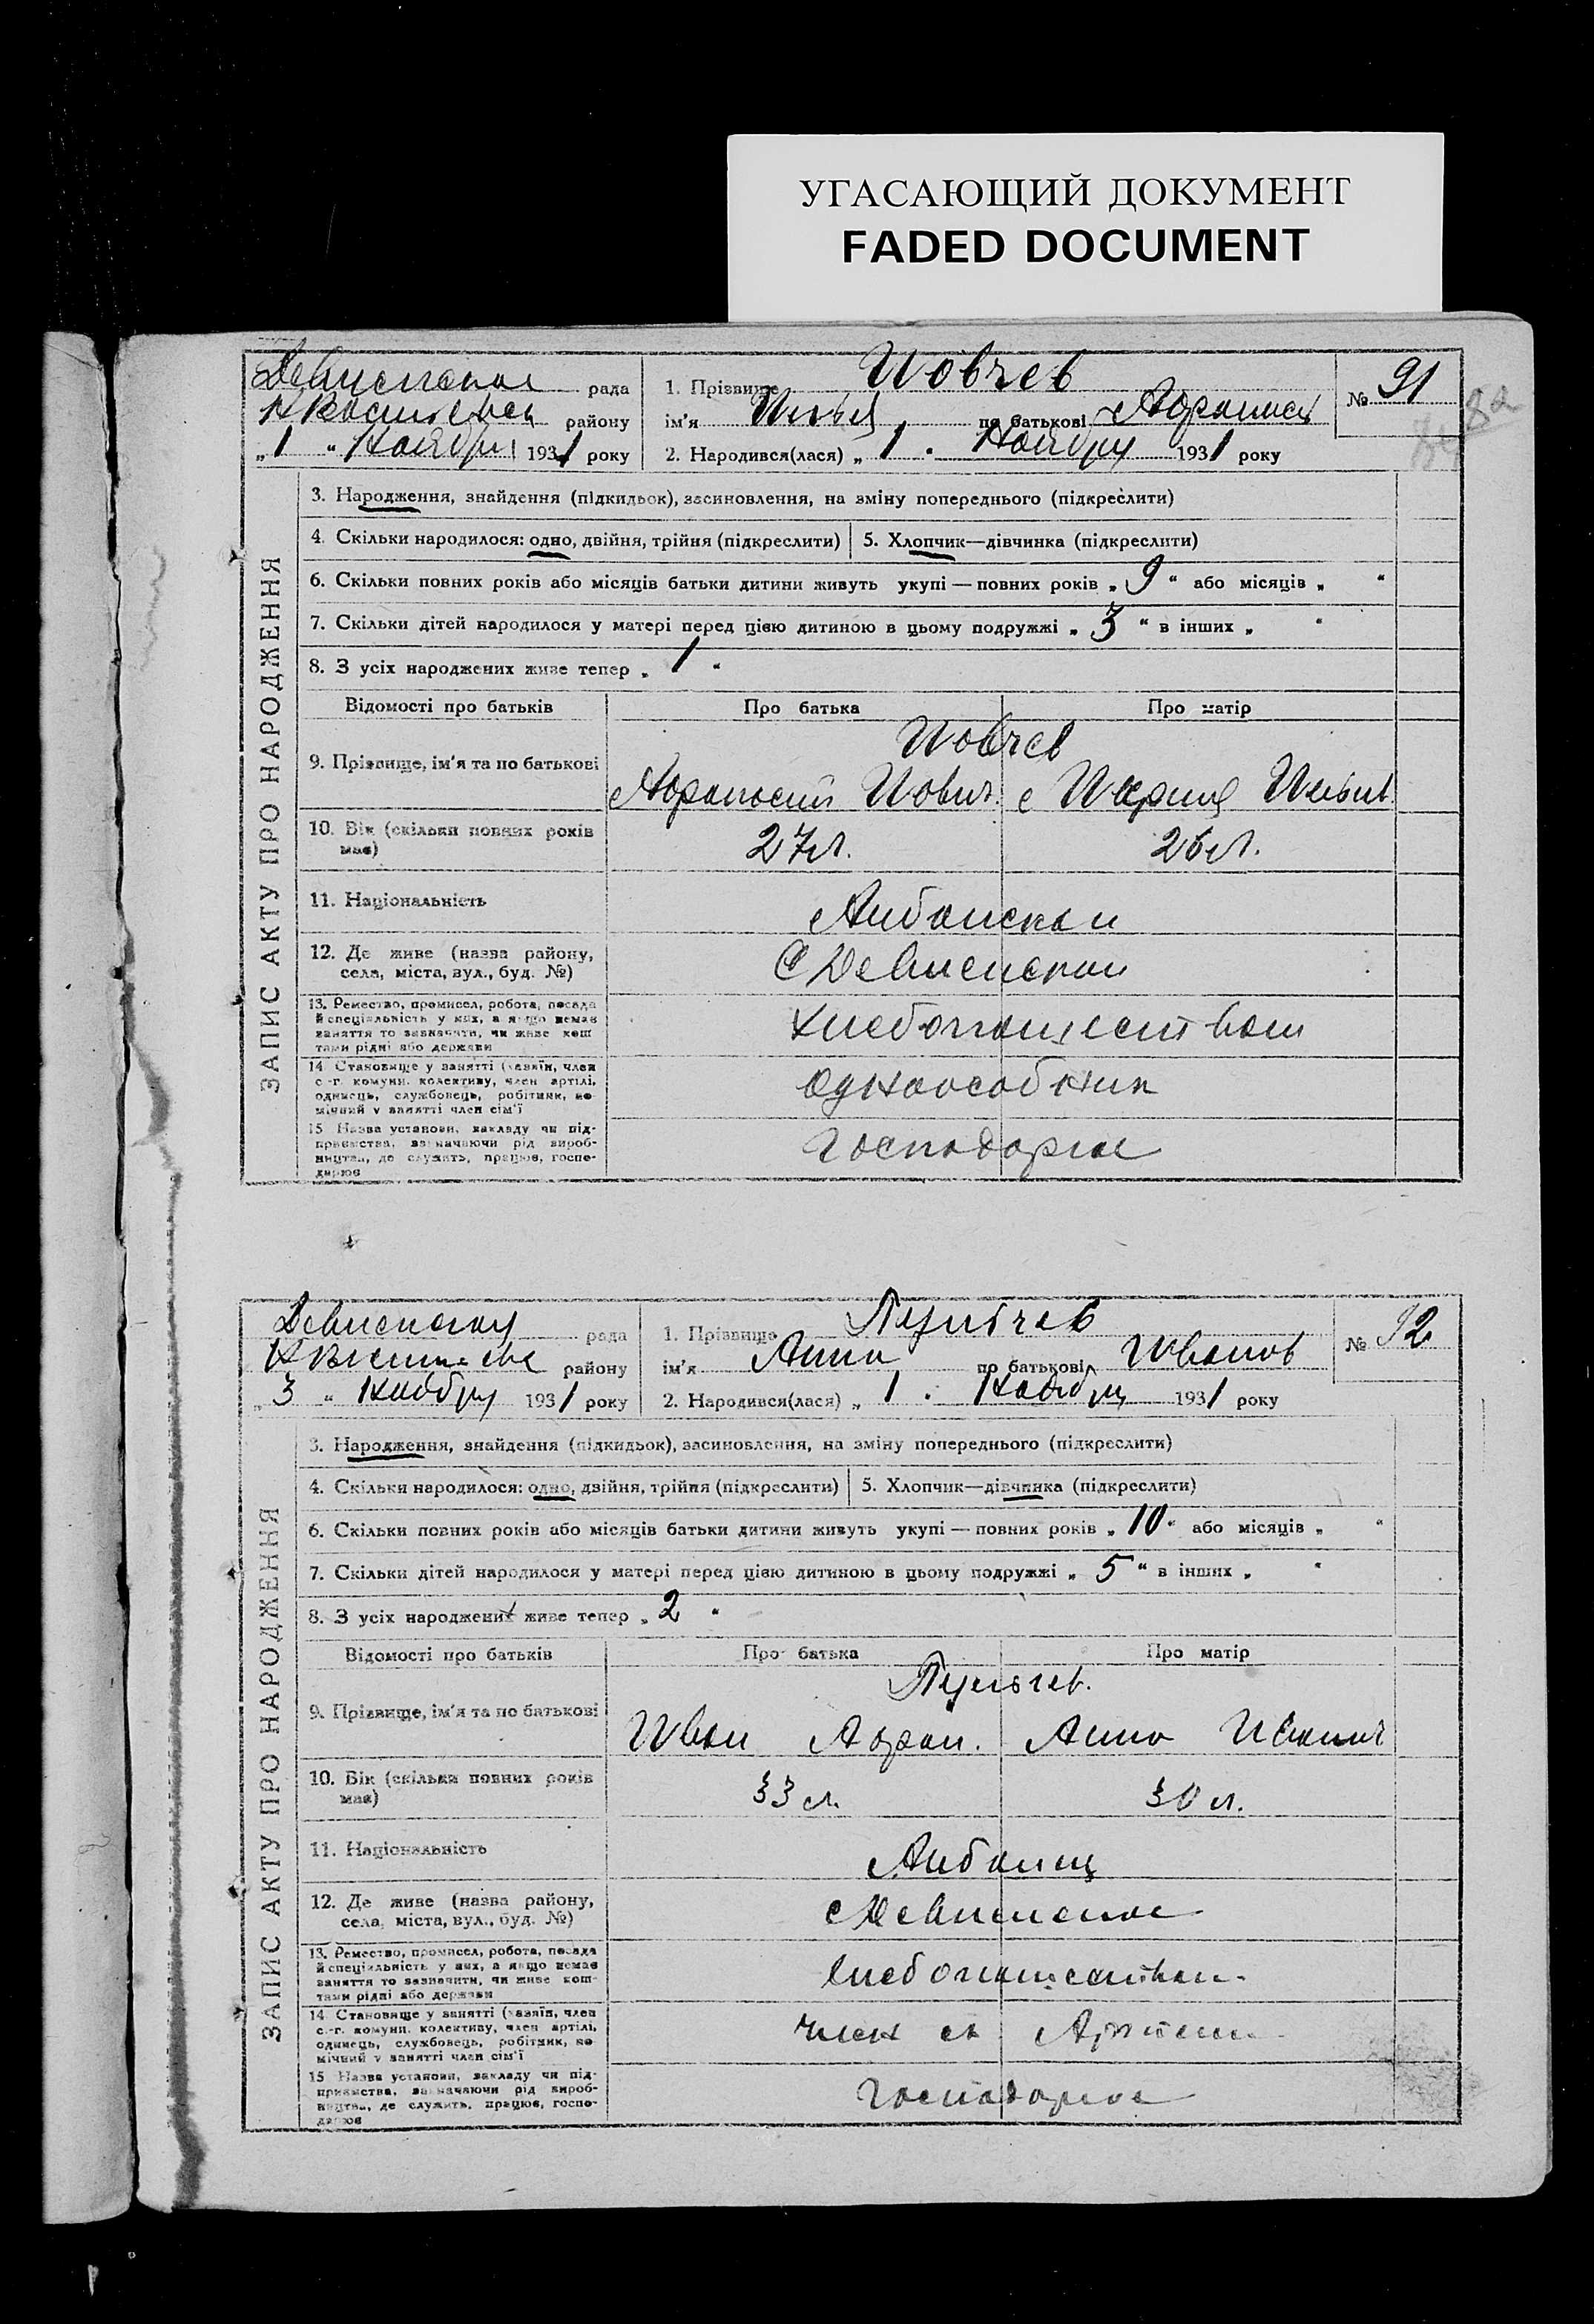 УГАСАЮЩИЙ ДОКУМЕНТ
FADED DOCUMENT
рада
району
„1“ Ноября 1931 року
1. Прізвище Иовчев
ім'я Илья по батькові
2. Народився(лася) „1“ Ноября 1931 року
№ 91
ЗАПИС АКТУ ПРО НАРОДЖЕННЯ
3. Народження, знайдення (підкидьок), засиновлення, на зміну попереднього (підкреслити)
4. Скільки народилося: одно, двійня, трійня (підкреслити)
5. Хлопчик—дівчинка (підкреслити)
6. Скільки повних років або місяців батьки дитини живуть укупі — повних років „9“ або місяців „ “
7. Скільки дітей народилося у матері перед цією дитиною в цьому подружжі „3“ в інших „ “
8. З усіх народжених живе тепер „1“
Відомості про батьків Про батька Про матір
9. Прізвище, ім'я та по батькові
Иовчев
10. Вік (скільки повних років має)
27 л. 26 л.
11. Національність
12. Де живе (назва району,
села, міста, вул., буд. №)
13. Ремество, промисел, робота, посада
й спеціяльність у них, а якщо немає
заняття то зазначити, чи живе кош
тами рідні або держави
14 Становище у занятті (хазяїн, член
с.-г. комуни. колективу, член артілі,
одинець, службовець, робітник, по
мічний у занятті член сім'ї
Одноособник
15 Назва установи, закладу чи під-
приємства, зазначаючи рід вироб-
ництва, де служить, працює, госпо-
дарює
Господарює
рада
району
„3“ Ноября 1931 року
1. Прізвище
ім'я Анна по батькові Иванов
2. Народився(лася) „1“ Ноября 1931 року
№ 92
ЗАПИС АКТУ ПРО НАРОДЖЕННЯ
3. Народження, знайдення (підкидьок), засиновлення, на зміну попереднього (підкреслити)
4. Скільки народилося: одно, двійня, трійня (підкреслити)
5. Хлопчик—дівчинка (підкреслити)
6. Скільки повних років або місяців батьки дитини живуть укупі — повних років „10“ або місяців „ “
7. Скільки дітей народилося у матері перед цією дитиною в цьому подружжі „5“ в інших „ “
8. З усіх народжених живе тепер „2“
Відомості про батьків Про батька Про матір
9. Прізвище, ім'я та по батькові
Иван Анна
10. Вік (скільки повних років має)
33 л. 30 л.
11. Національність
12. Де живе (назва району,
села, міста, вул., буд. №)
13. Ремество, промисел, робота, посада
й спеціяльність у них, а якщо немає
заняття то зазначити, чи живе кош-
тами рідні або держави
14 Становище у занятті (хазяїн, член
с.-г. комуни. колективу, член артілі,
одинець, службовець, робітник, по
мічний у занятті член сім'ї
15 Назва установи, закладу чи під-
приємства, зазначаючи рід вироб-
ництва, де служить, працює, госпо-
дарює
Господарює